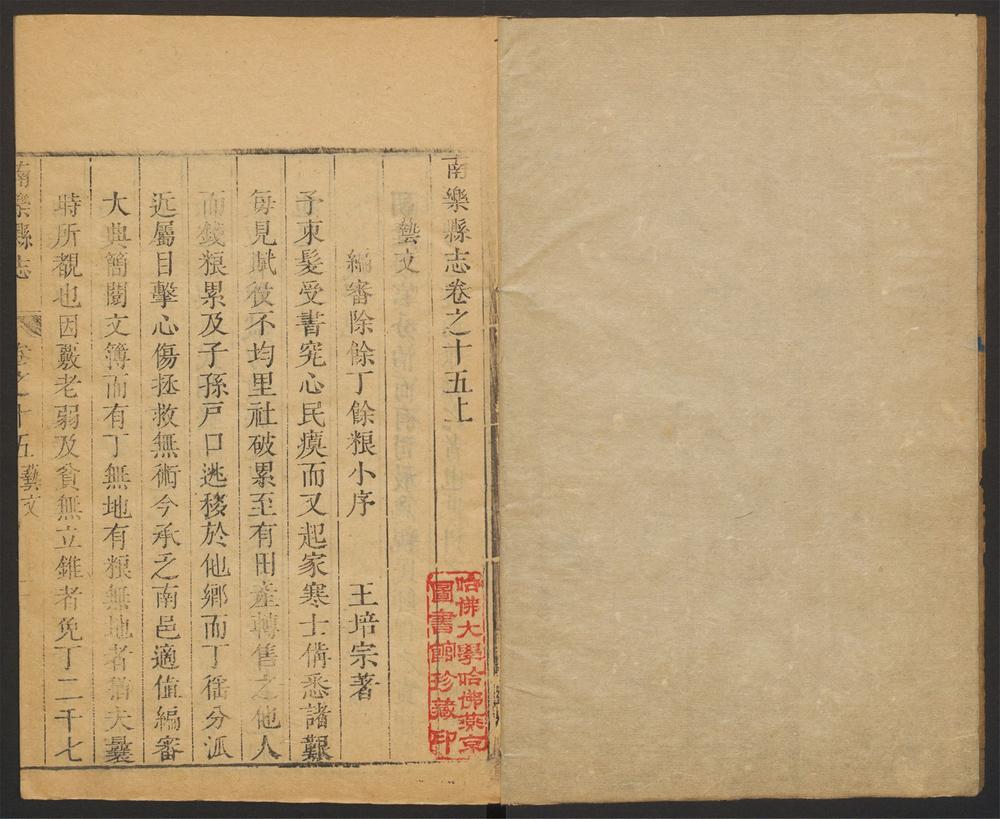 南樂縣志卷之十五上
藝文
編審除餘丁餘粮小序 王培宗著
予束髮受書究心民瘼而又起家寒士備悉諸艱
每見賦役不均里社破累至有田產轉售之他人
而錢粮累及子孫戶口逃移於他鄉而丁徭分派
近屬目擊心傷拯救無術今承乏南邑適值編審
大典簡閱文簿而有丁無地有粮無地者猶夫曩
時所覩也因覈老弱及貧無立錐者免丁二千七
南樂縣志 卷之十五 藝文
哈佛大學哈佛燕京
圖書館珍藏印